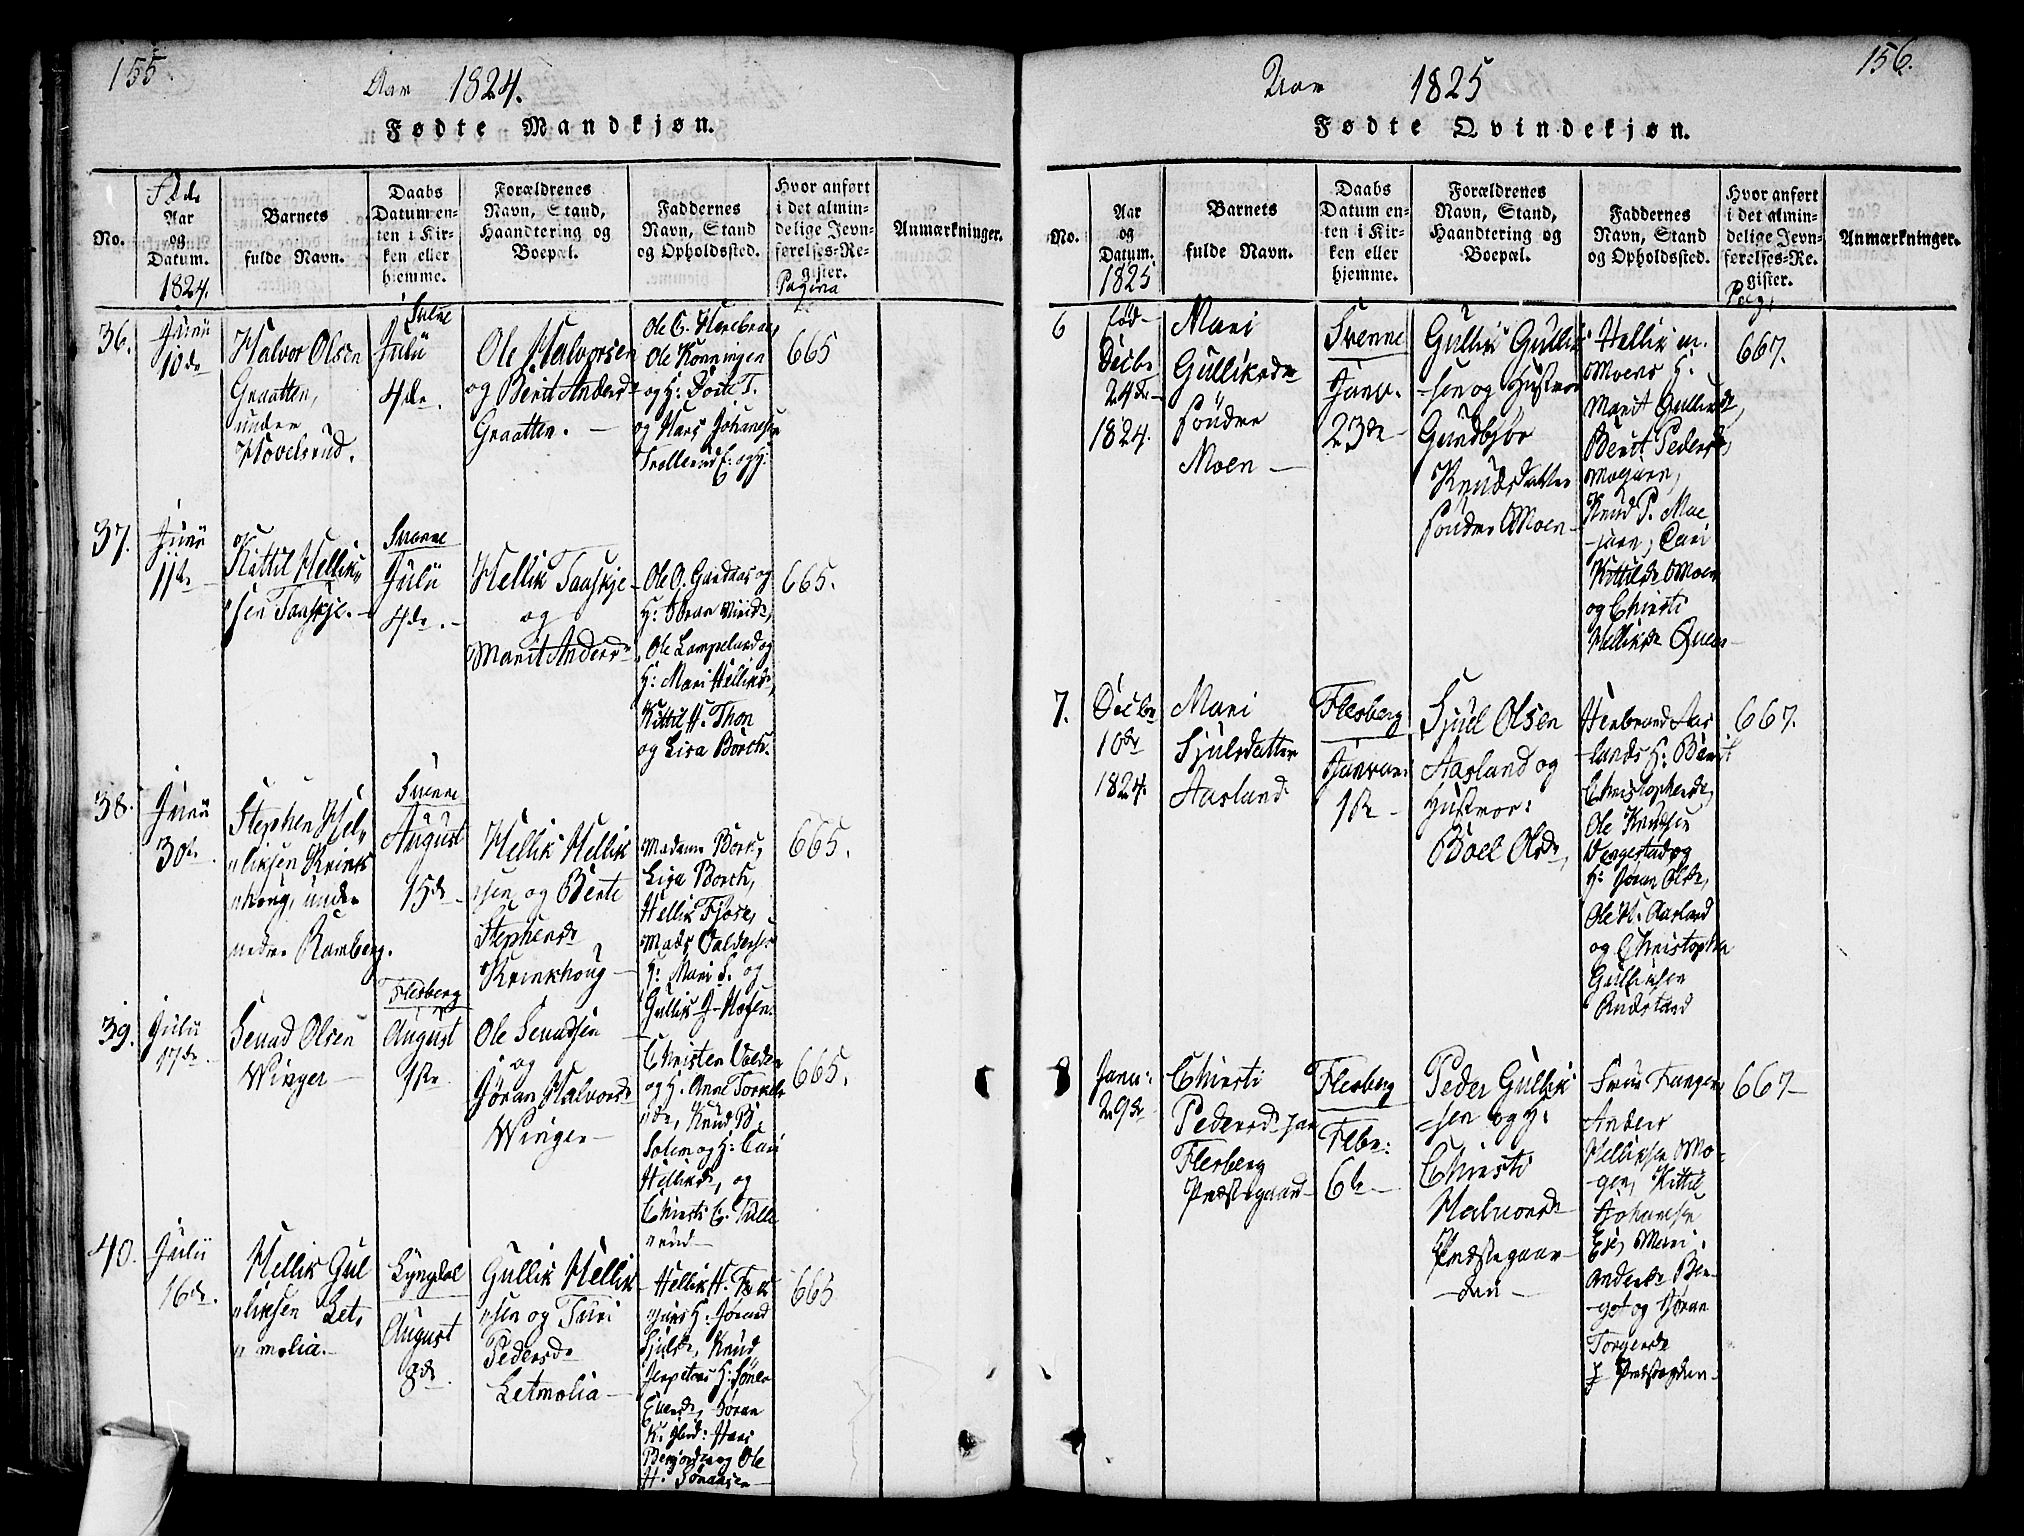 155.
Aar 1824.
Fødte Mandkjøn.
No.
Aar
og
Datum.
1824.
Barnets
fulde Navn.
Daabs
Datum en-
ten i Kir-
ken eller
hjemme.
Forældrenes
Navn, Stand,
Haandtering og
Boepæl.
Faddernes
Navn, Stand
og Opholdssted.
Hvor anført
i det almin-
delige Jevn-
førelses-Re-
gister.
Pagina
Anmærkninger.
36.
Junii
10de
Halvor Olsen
Graatten,
under
Hovelsrud.
Svene
Julii
4de.
Ole Halvorsen
og Berit Andersd
Graatten.
Ole Konningen
og H: Dorte T.
og Hans Johansen
665
37.
Junii
11te
Kittil Hellik
sen Taaskje.
Svenne
Julii
4de.
Hellik Taaskje
og
Marit Andersd
Ole O. Gaadaas og
H: Jöran
Ole Lampeland og
H: Mari Helliksd,
Kittil H. Thon
og Lisa Borch.
665.
38.
Junii
30te
Stephen Hel
liksen Krink
houg, under
nedre Ramberg.
Svenne
August
15de
Hellik Hellik
sen og Berte
Stephensd
Krinkhoug
Madame Bork,
Lisa Borch,
Hellik Fjose,
Mads
H: Mari S. og
Gullik
665.
39.
Julii
17de
Olsen
Winger
Flesberg
August
1ste
Ole
og
Jöran Halvorsd
Winger
Christen
og H. Anne Torkels
de, Knud B.
og H: Cari
Helliksd, og
Christi C. Tulle
rud
665.
40.
Julii
16de.
Hellik Gul
liksen Let
molia.
Lyngdal
August
8de
Gullik Hellik
sen og Turi
Pedersd
Letmolia
Hellik H.
H: Jörand
Sjulsd, Knud
Jöran
og Ole
665
156.
Aar 1825
Fødte Qvindekjøn.
No.
Aar
og
Datum.
1825
Barnets
fulde Navn.
Daabs
Datum en-
ten i Kir-
ken eller
hjemme.
Forældrenes
Navn, Stand,
Haandtering og
Boepæl.
Faddernes
Navn, Stand
og Opholdssted.
Hvor anført
i det almin-
delige Jevn-
førelses-Re-
gister.
Pag.
Anmærkninger.
6
fød
Decbr
24de
1824.
Mari
Gulliksdr
söndre
Moen
Svenne
Janv.
23de
Gullik Gullik
sen og Hustroe
Gundbjör
Knudsdatter
söndre Moen
Hellik m.
Moens H:
Marit Gulliksd,
Berit Pedersd,
Knud P. Moe
Cari
Kittilsd Moen
og Christi
Helliksd
667.
7.
Decbr
10de
1824.
Mari
Sjulsdatter
Aasland
Flesberg
Januar
1ste
Sjul Olsen
Aasland og
Hustroe:
Boel Olsd,
Herbrand Aas
lands H: Berit
Christophersd,
Ole Knudsen
Vengestad og
H: Jöran Olsd,
Ole H. Aasland
og Christopher
Gulliksen
Rudstand
667.
8
Janu:
29de
Christi
Pedersd
Flesberg
Præstegaard
Flesberg
Febr:
6te
Peder Gullik
sen og H:
Christi
Halvorsd
Præstegaar
den
Anders
Helliksen Mo
gen, Kittil
Johansen
Mari
Andersd Ben
got og Jöran
Torgersd
Præstegden
667